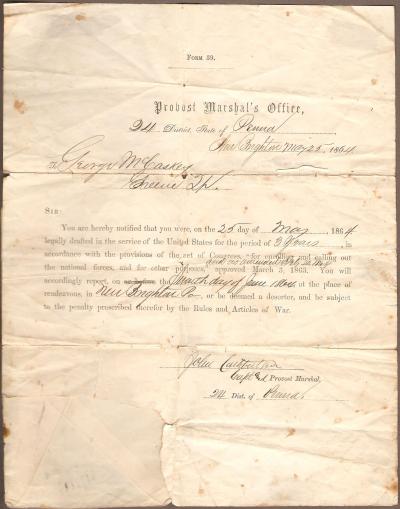 Form 39.
Provost Marshal's Office,
24 District, State of Penna
New Brighton May 25, 1864
To George McCaskey
Greene Tp.
Sir:
You are hereby notified that you were, on the 25 day of May, 1864
legally drafted in the service of the United States for the period of 3 Years, in
accordance with the provisions of the act of Congress, "for enrolling and calling out
the national forces, and for other purposes," approved March 3, 1863. You will
and as amended
accordingly report, on or before the day of June 1864 at the place of
rendezvous, in New Brighton Pa, or be deemed a deserter, and be subject
to the penalty prescribed therefor by the Rules and Articles of War.
John Cuthbertson
Capt and Provost Marshal,
24 Dist. of Penna